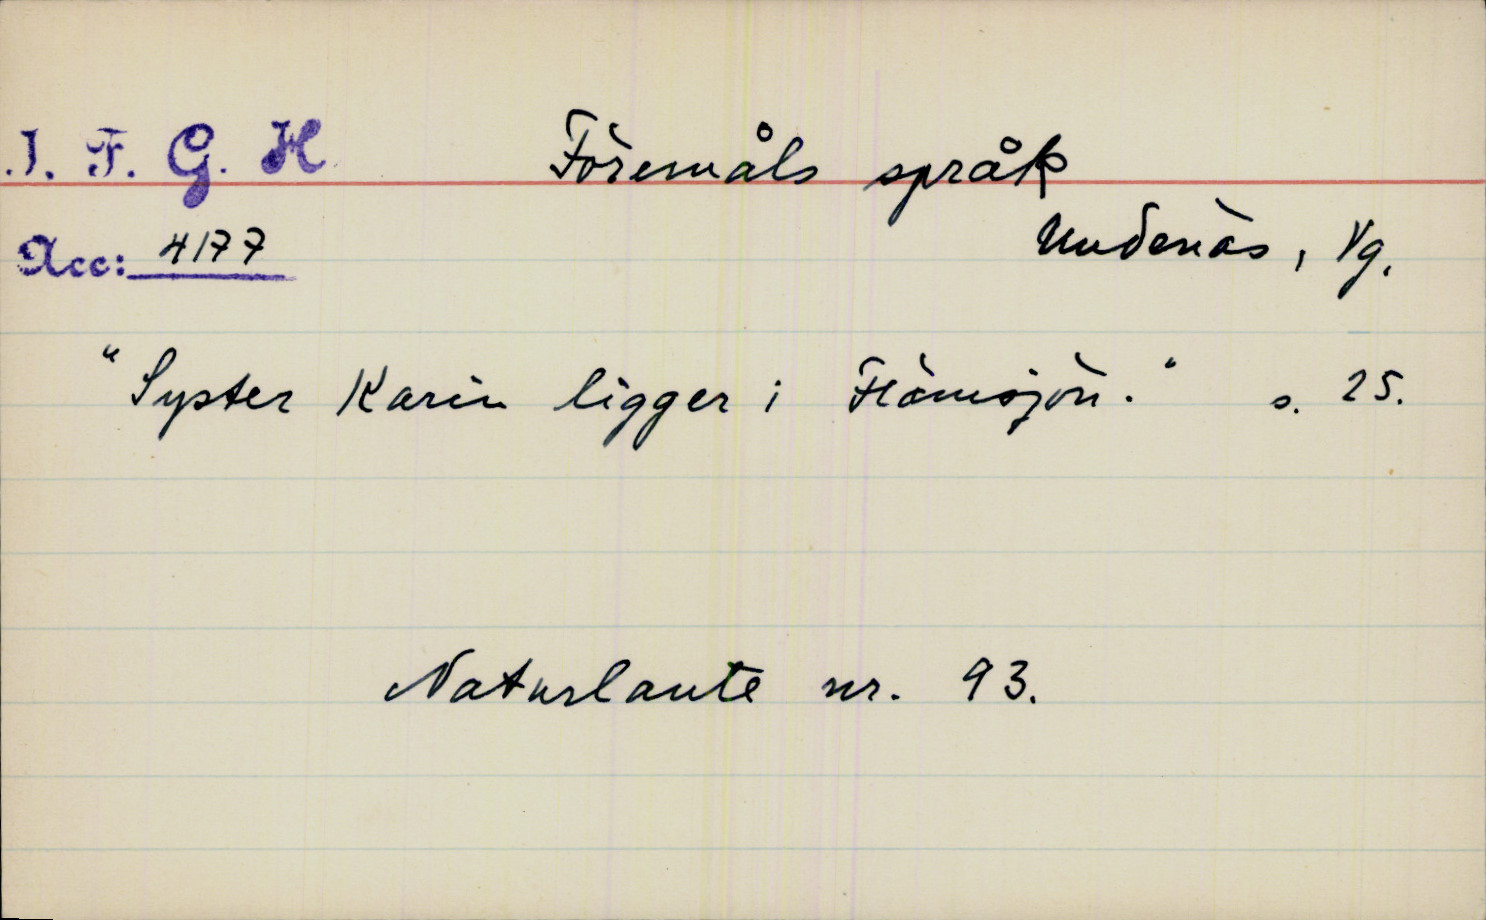 I. F. G. H. Föremåls språk
Acc: 4177 Undenäs, Vg.
"Syster Karin ligger i Flämsjön." s. 25.
Naturlaute nr. 93.